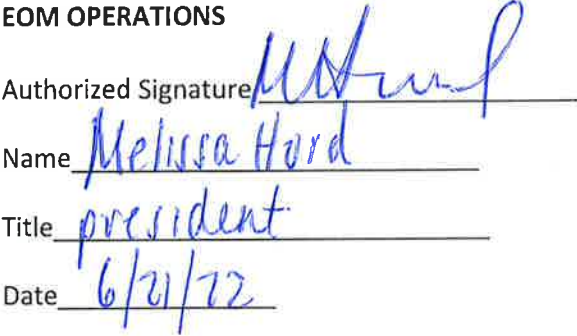 EOM OPERATIONS
Authorized Signature
Name Melissa Hord
Title president
Date 6/21/22